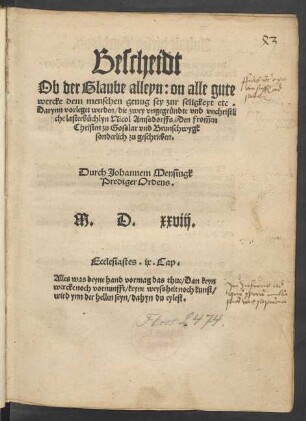 Bescheidt
Ob der Glaube alleyn: on alle gute
wercke dem menschen genug sey zur seligkeyt etc.
Darynn vorleget werden/ die zwey vngegründte vnd vnchristli
che lasterbüchlyn Nicol Amßdorffs/ den fromen
Christen zu Goßlar vnd Brunschwygk
sonderlich zu geschrieben.
Durch Johannem Mensingk
Prediger Ordens.
M. D. xxviij.
Ecclesiastes. ix. Cap.
Alles was deyne hand vormag das thue/ Dan keyn
wercke noch vornunfft/ keyne weyßheit noch kunst/
wird ynn der hellen seyn/ dahyn du eylest.
474.